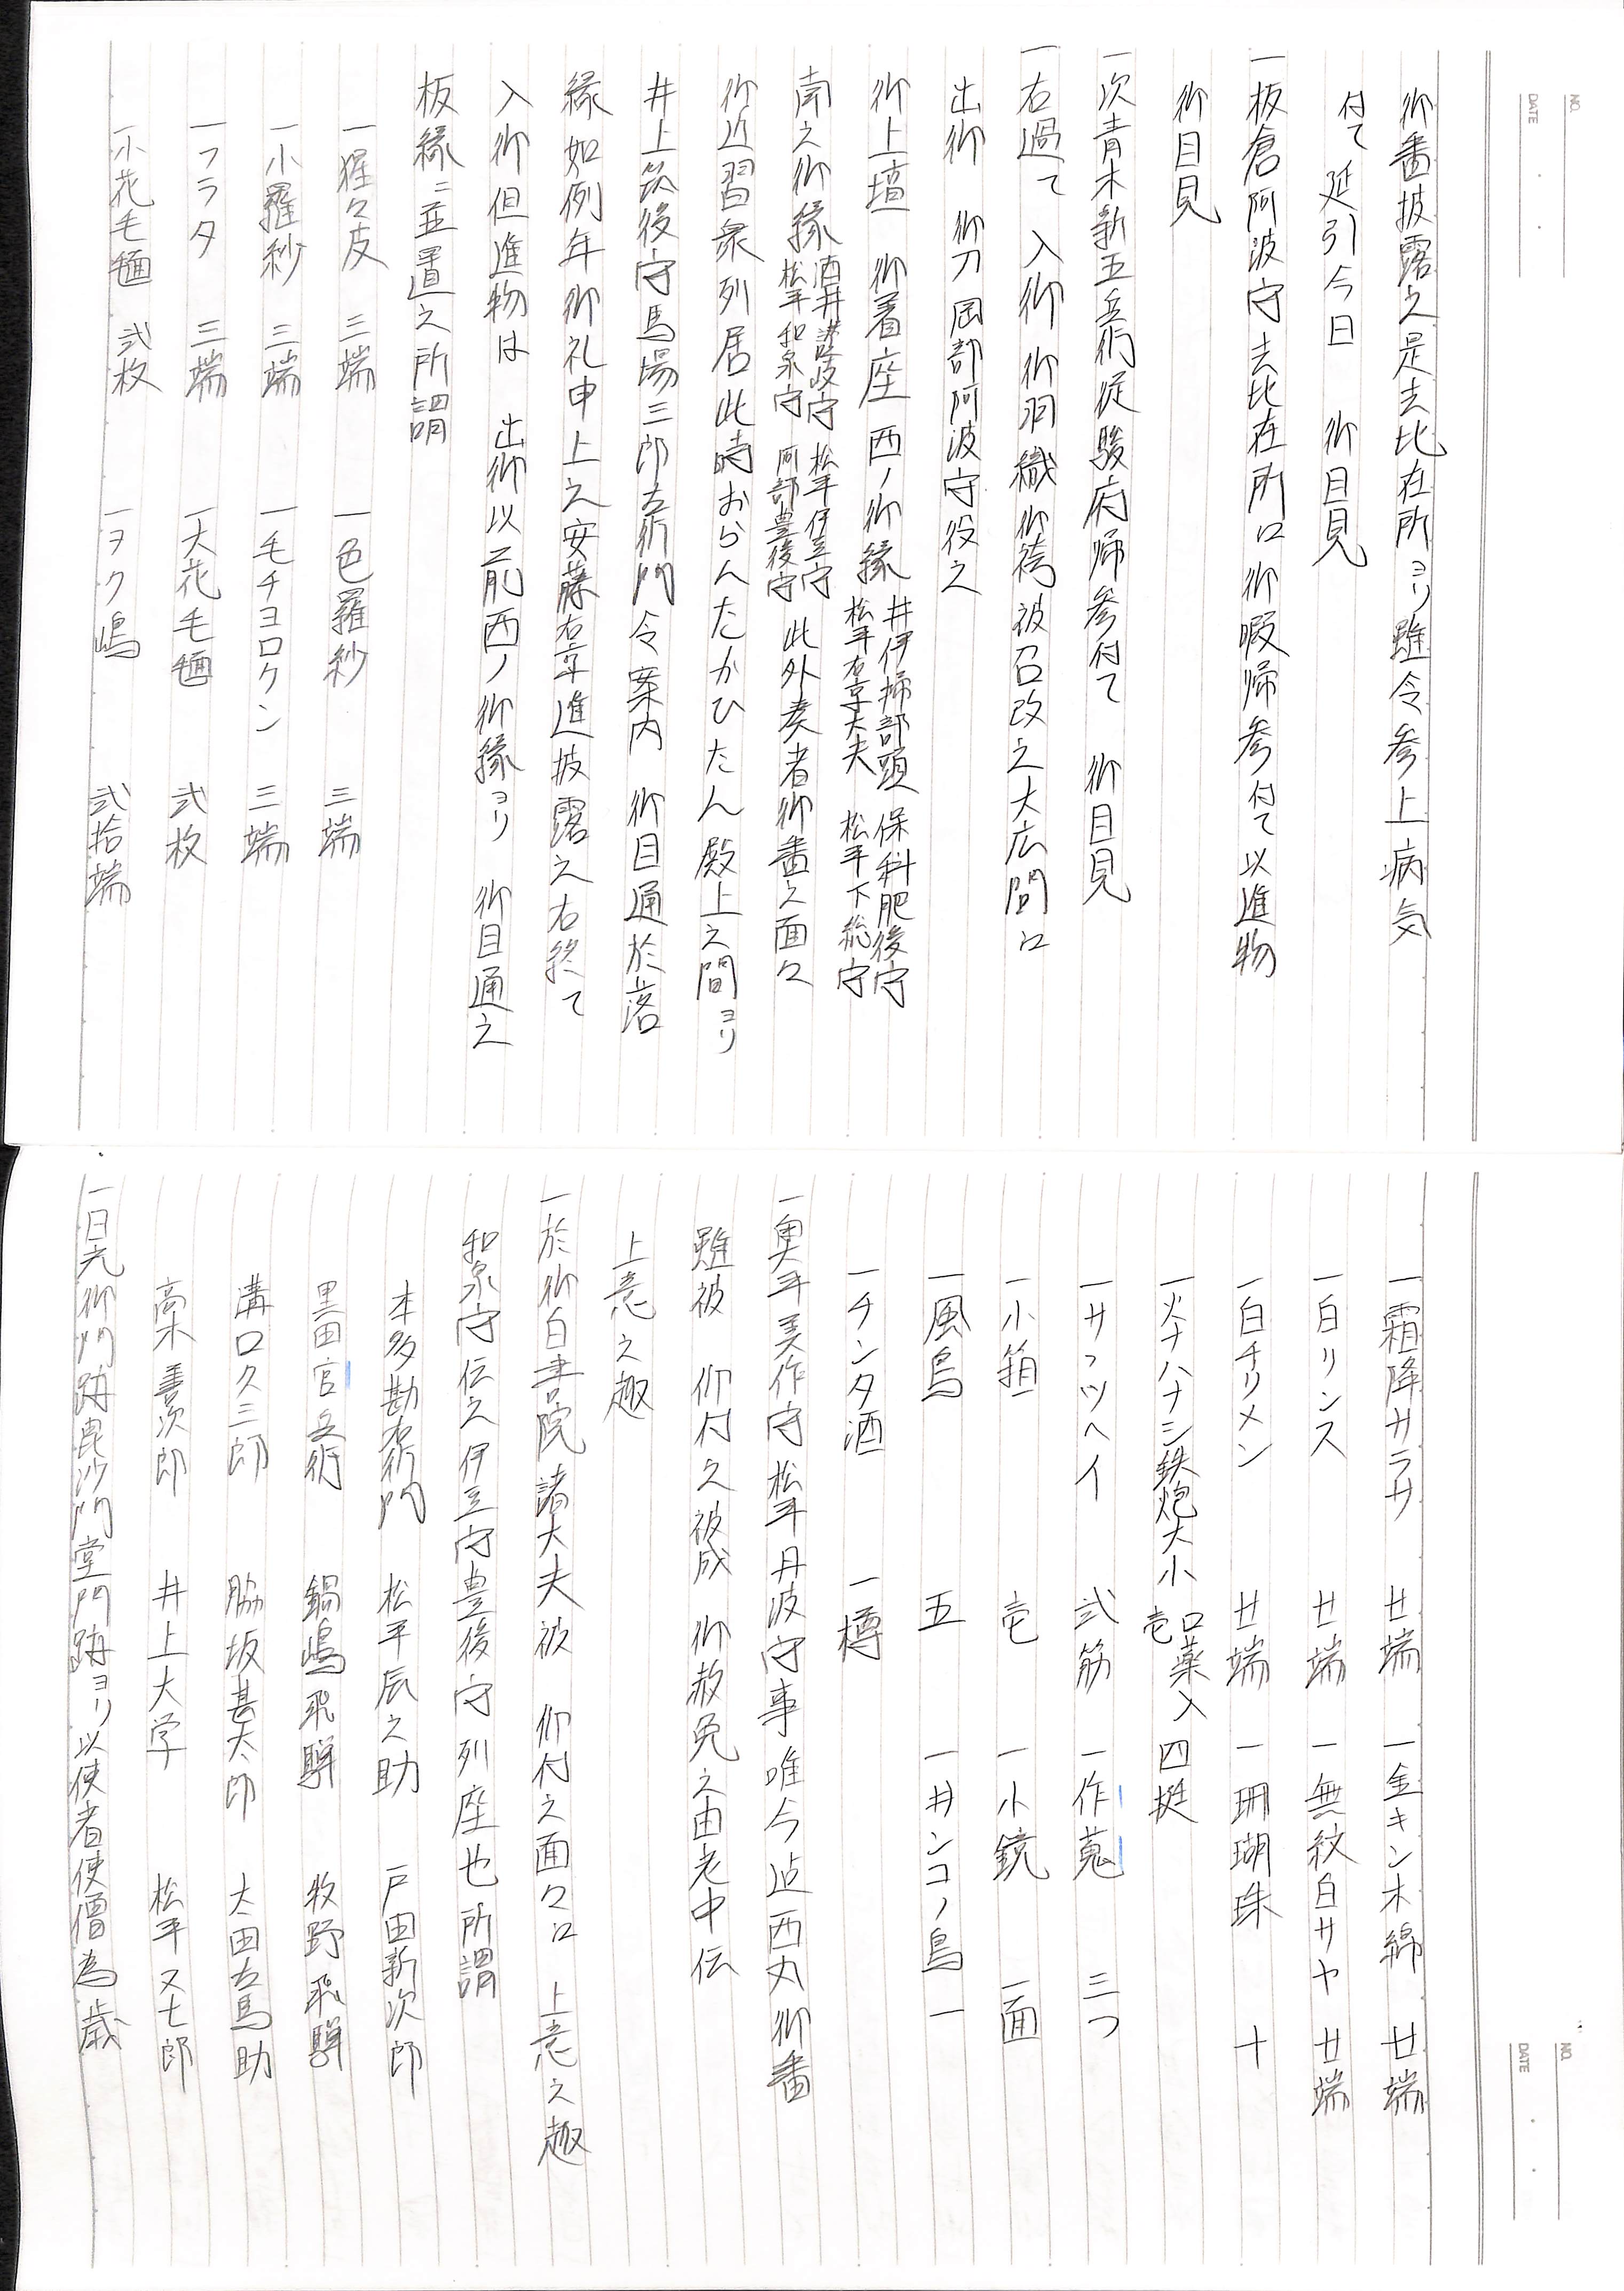 NO.
DATE
御番披露之是去比在所ヨリ雖令参上病気
付て延引今日 御目見
一板倉阿波守去比在所江御暇帰参付て以進物
御目見
一次青木新五兵衛従駿府帰参付て 御目見
一右過て 入御 御羽織御袴被召改之大広間江
出御 御刀岡部阿波守役之
御上壇 御着座 西ノ御縁 井伊掃部頭 保科肥後守
松平右京大夫 松平下総守
南之御縁 酒井讃岐守 松平伊豆守
松平和泉守 阿部豊後守 此外奏者御番之面々
御近習衆列居此時おらんたかひたん殿上之間ヨリ
井上筑後守馬場三郎左衛門令案内 御目通於落
縁如例年御礼申上之安藤右京進披露之右終て
入御但進物は 出御以前西ノ御縁ヨリ 御目通之
板縁ニ並置之所謂
一猩々皮 三端 一色羅紗 三端
一小羅紗 三端 一毛チヨロクン 三端
一フラタ 三端 一大花毛氈 弐枚
一小花毛氈 弐枚 一ヲク嶋 弐拾端
NO.
DATE
一霜降サラサ 廿端 一金キン木綿 廿端
一白リンス 廿端 一無紋白サヤ 廿端
一白チリメン 廿端 一珊瑚珠 十
一火ナハナシ鉄炮大小 口薬入 壱 四挺
一サフツヘイ 弐筋 一作蒐 三つ
一小箱 壱 一小鏡 一面
一風鳥 五 一井ンコノ鳥 一
一チンタ酒 一樽
一奥平美作守松平丹波守事唯今迄西丸御番
雖被 仰付之被成 御赦免之由老中伝
上意之趣
一於御白書院諸大夫被 仰付之面々江 上意之趣
和泉守伝之伊豆守豊後守列座也所謂
本多勘右衛門 松平辰之助 戸田新次郎
黒田官兵衛 鍋嶋飛騨 牧野飛騨
溝口久三郎 脇坂甚太郎 太田左馬助
高木善次郎 井上大学 松平又七郎
一日光御門跡毘沙門堂門跡ヨリ以使者使僧為歳